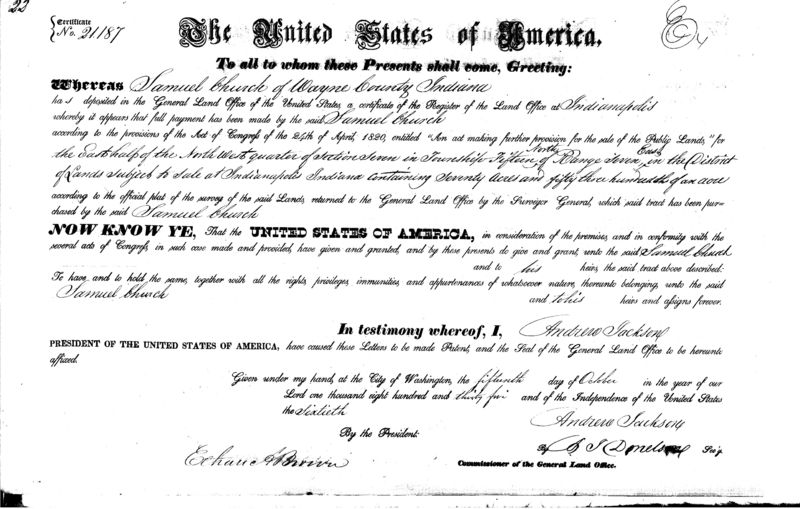 22
Certificate
No. 21187
The United States of America.
To all to whom these Presents shall come, Greeting:
Whereas Samuel Church of Wayne County Indiana
has deposited in the General Land Office of the United States, a certificate of the Register of the Land Office at Indianapolis
whereby it appears that full payment has been made by the said Samuel Church
according to the provisions of the Act of Congress of the 24th of April, 1820, entitled "An act making further provision for the sale of the Public Lands," for
the East half of the North West quarter of section Seven in Township Fifteen North, of Range Seven East, in the District
of Lands subject to sale at Indianapolis Indiana containing Seventy Acres and fifty three hundredth of an acre
according to the official plat of the survey of the said Lands, returned to the General Land Office by the Surveyor General, which said tract has been pur-
chased by the said Samuel Church
NOW KNOW YE, That the UNITED STATES OF AMERICA, in consideration of the premises, and in conformity with the
several acts of Congress, in such case made and provided, have given and granted, and by these presents do give and grant, unto the said Samuel Church
and to his heirs, the said tract above described:
To have and to hold the same, together with all the rights, privileges, immunities, and appurtenances of whatsoever nature, thereunto belonging, unto the said
Samuel Church and to his heirs and assigns forever.
In testimony whereof, I, Andrew Jackson
PRESIDENT OF THE UNITED STATES OF AMERICA, have caused these Letters to be made Patent, and the Seal of the General Land Office to be hereunto
affixed.
Given under my hand, at the City of Washington, the fifteenth day of October in the year of our
Lord one thousand eight hundred and thirty five and of the Independence of the United States
the Sixtieth
Andrew Jackson
By the President:
By A J Donelson Sec'y.
Commissioner of the General Land Office.
Brown